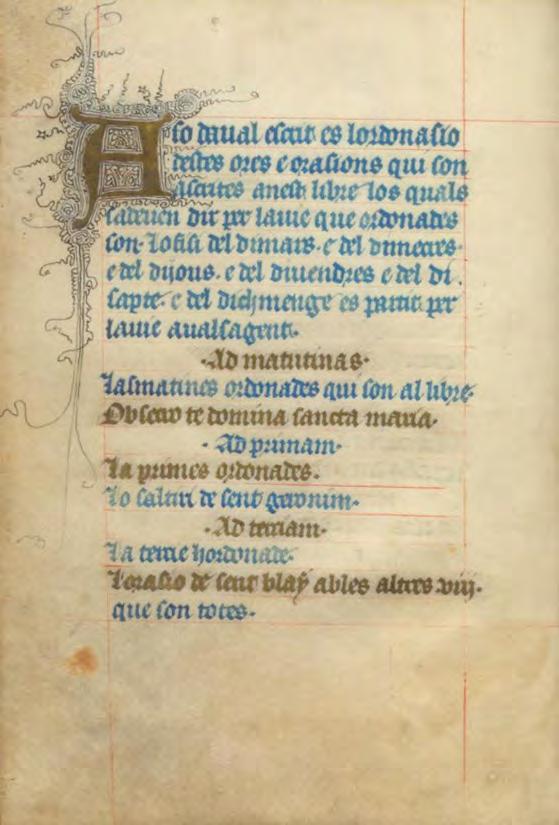 Aso daual escrit es lordonasio
destes ores e orasions qui son
ascrites anest libre los quals
saderien dir per lauie que ordonades
son. Lofisi del dimars. e del dimecres.
e del dijous. e del diuendres e del di
sapte. e del dichmenge es partit per
lauie aualsagent.
·Ad matutinas·
Lasmatines ordonades qui son al libre.
Obsecro te domina sancta maria.
·Ad primam·
La primes ordonades.
Lo saltiri de sent geronim.
·Ad terciam·
La tercie hordonade.
Lorasio de sent blay ables altres viij.
que son totes.